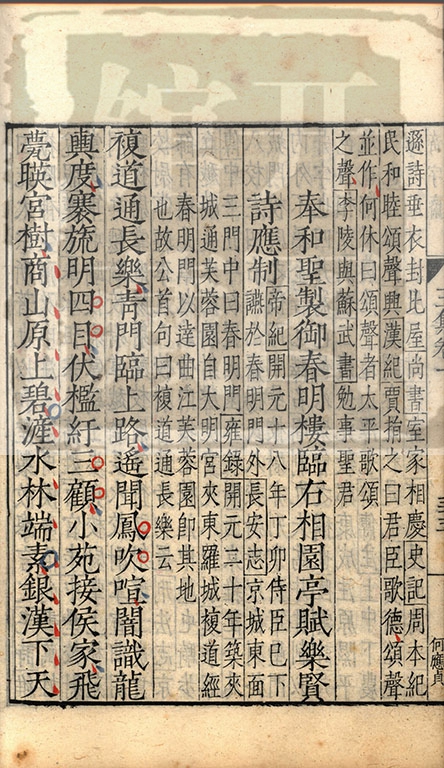 遜詩垂衣封比屋尚書室家相慶史記周本紀
民和睦頌聲興漢紀賈捐之曰君臣歌德頌聲
並作何休曰頌聲者太平歌頌
之聲李陵與蘇武書勉事聖君
奉和聖製御春明樓臨右相園亭賦樂賢
詩應制
帝紀開元十八年丁卯侍臣已下
讌於春明門外長安志京城東面
三門中曰春明門雍録開元二十年築夾
城通芙蓉園自大明宮夾東羅城複道經
春明門以達曲江芙蓉園卽其地
也故公首句曰複道通長樂云
複道通長樂青門臨上路遙聞鳳吹喧闇識龍
輿度褰旒明四目伏檻紆三顧小苑接侯家飛
甍暎宮樹商山原上碧滻水林端素銀漢下天
何應貞